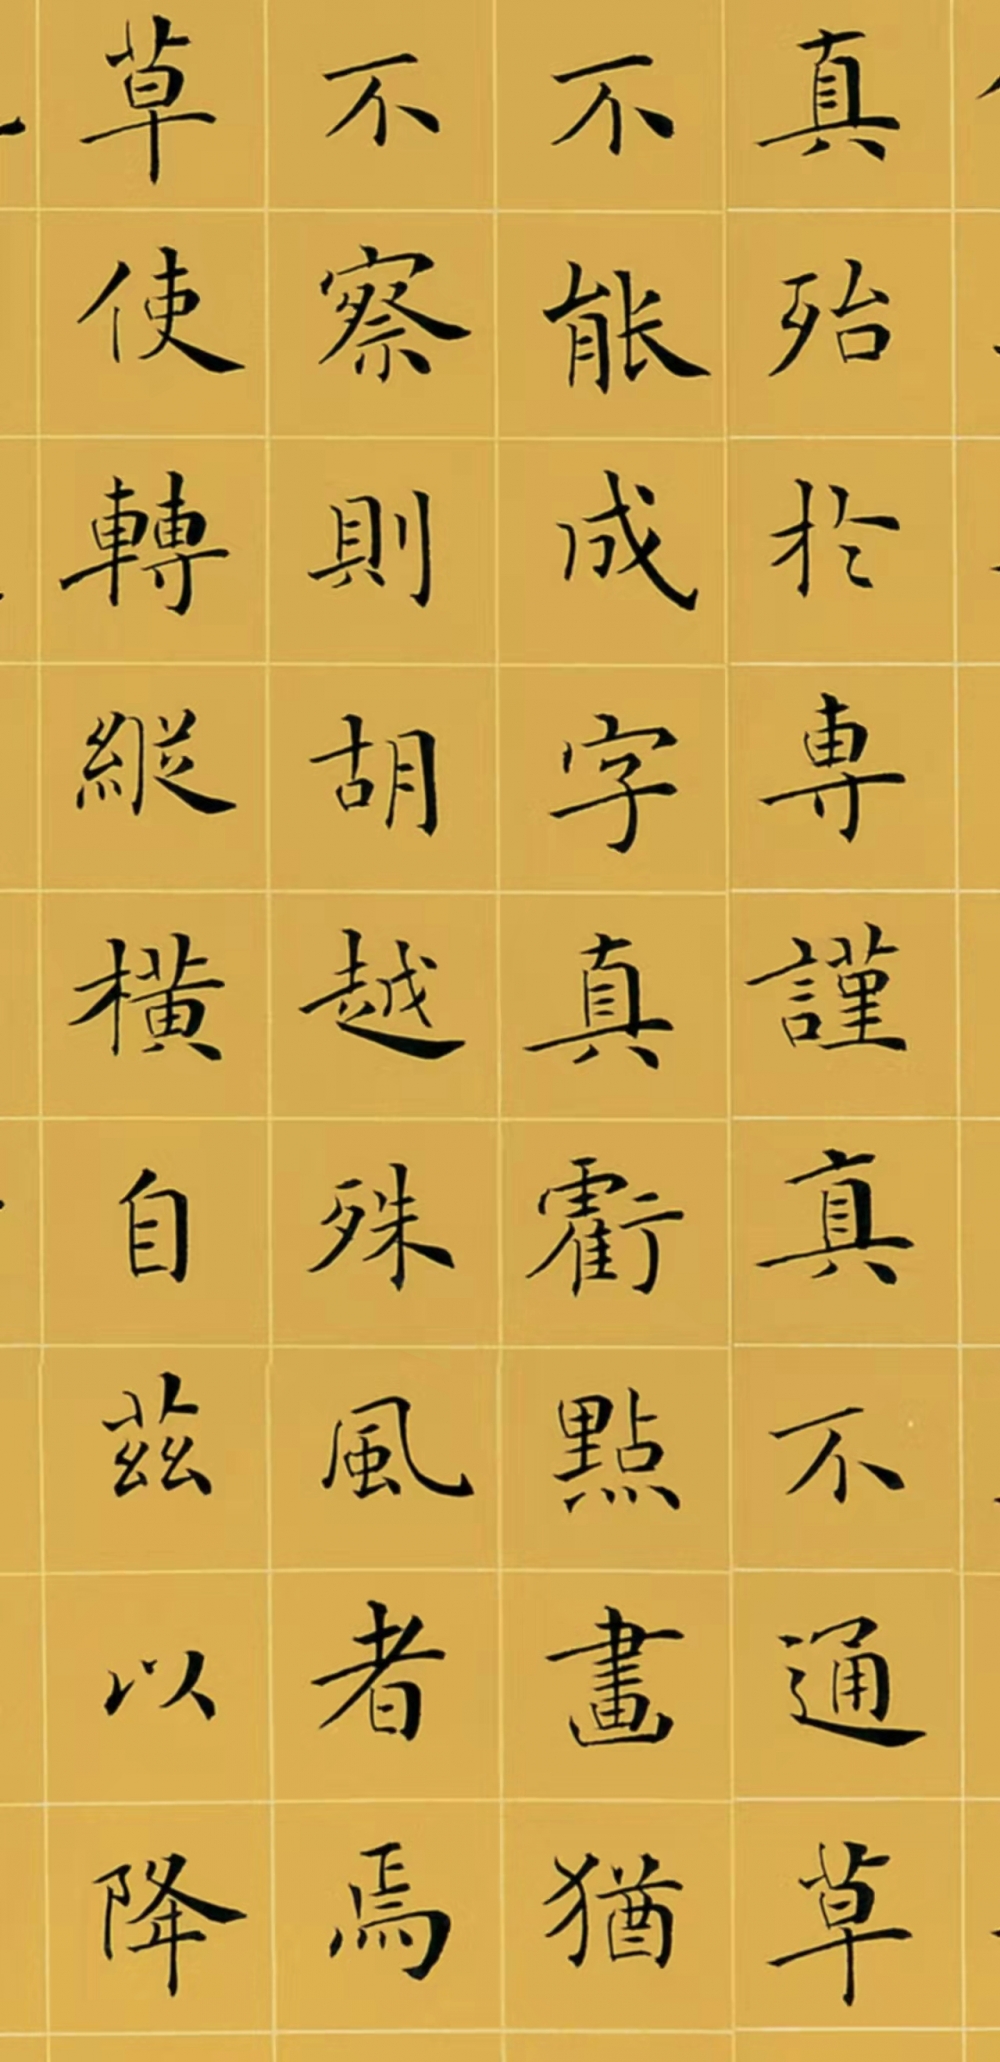 真殆於専謹真不通草
不能成字真虧點畫猶
不察則胡越殊風者焉
草使轉縦橫自茲以降